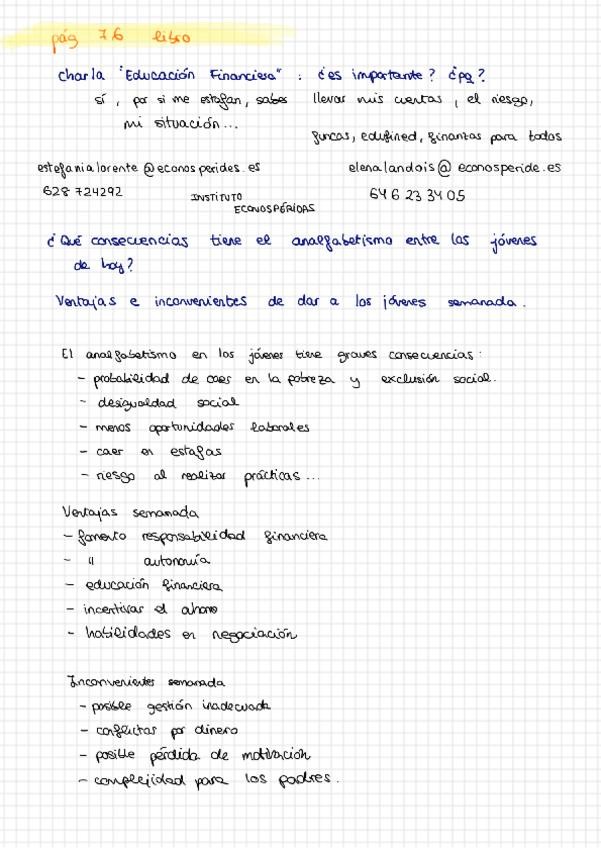 pág 76 libro
Charla "Educación Financiera" : ¿es importante? ¿pq?
sí, por si me estafan, sabes llevar mis cuentas, el riesgo,
mi situación...
funcas, edufined, finanzas para todos
estefanialorente@econosperides.es elenalandois@econosperide.es
628 724292 INSTITUTO 646 23 34 05
ECONOSPÉRIDAS
¿Qué consecuencias tiene el analfabetismo entre los jóvenes
de hoy?
Ventajas e inconvenientes de dar a los jóvenes semanada.
El analfabetismo en los jóvenes tiene graves consecuencias:
- probabilidad de caer en la pobreza y exclusión social.
- desigualdad social
- menos oportunidades laborales
- caer en estafas
- riesgo al realizar prácticas...
Ventajas semanada
- fomento responsabilidad financiera
- " autonomía
- educación financiera
- incentivar el ahorro
- habilidades en negociación
Inconvenientes semanada
- posible gestión inadecuada
- conflictos por dinero
- posible pérdida de motivación
- complejidad para los padres.